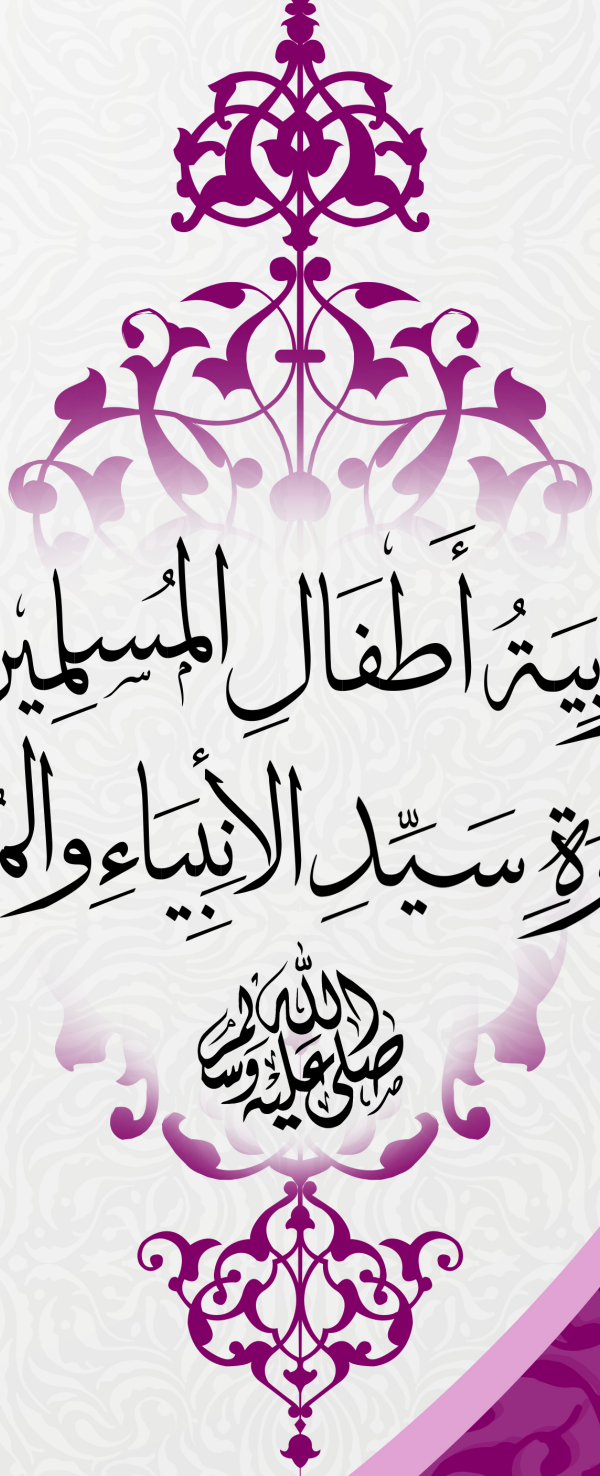 أَطْفَالِ المُسلِمين
سَيِّدِ الأَنبِيَاءِ
صلى الله عليه وسلم